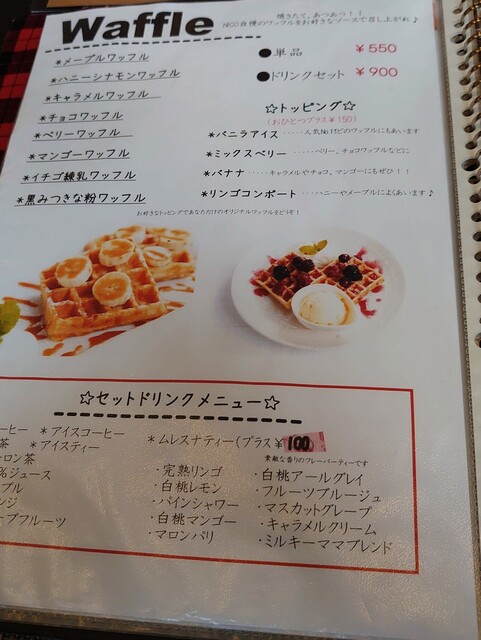 Waffle
焼きたて、あつあつ！！
NICO自慢のワッフルをお好きなソースで召し上がれ♪
*メープルワッフル
*ハニーシナモンワッフル
*キャラメルワッフル
*チョコワッフル
*ベリーワッフル
*マンゴーワッフル
*イチゴ練乳ワッフル
*黒みつきな粉ワッフル
●単品 ￥550
●ドリンクセット ￥900
☆トッピング☆
(おひとつプラス￥150)
*バニラアイス ‥‥‥人気No.1!どのワッフルにもあいます
*ミックスベリー ‥‥‥ベリー、チョコワッフルなどに
*バナナ ‥‥‥キャラメルやチョコ、マンゴーにもぜひ！！
*リンゴコンポート ‥‥‥ハニーやメープルによくあいます♪
お好きなトッピングであなただけのオリジナルワッフルをどうぞ！
☆セットドリンクメニュー☆
ーヒー *アイスコーヒー
茶 *アイスティー
ロン茶
%ジュース
プル
ンジ
ープフルーツ
*ムレスナティー(プラス￥100
素敵な香りのフレーバーティーです
・完熟リンゴ
・白桃レモン
・パインシャワー
・白桃マンゴー
・マロンパリ
・白桃アールグレイ
・フルーツブルージュ
・マスカットグレープ
・キャラメルクリーム
・ミルキーママブレンド